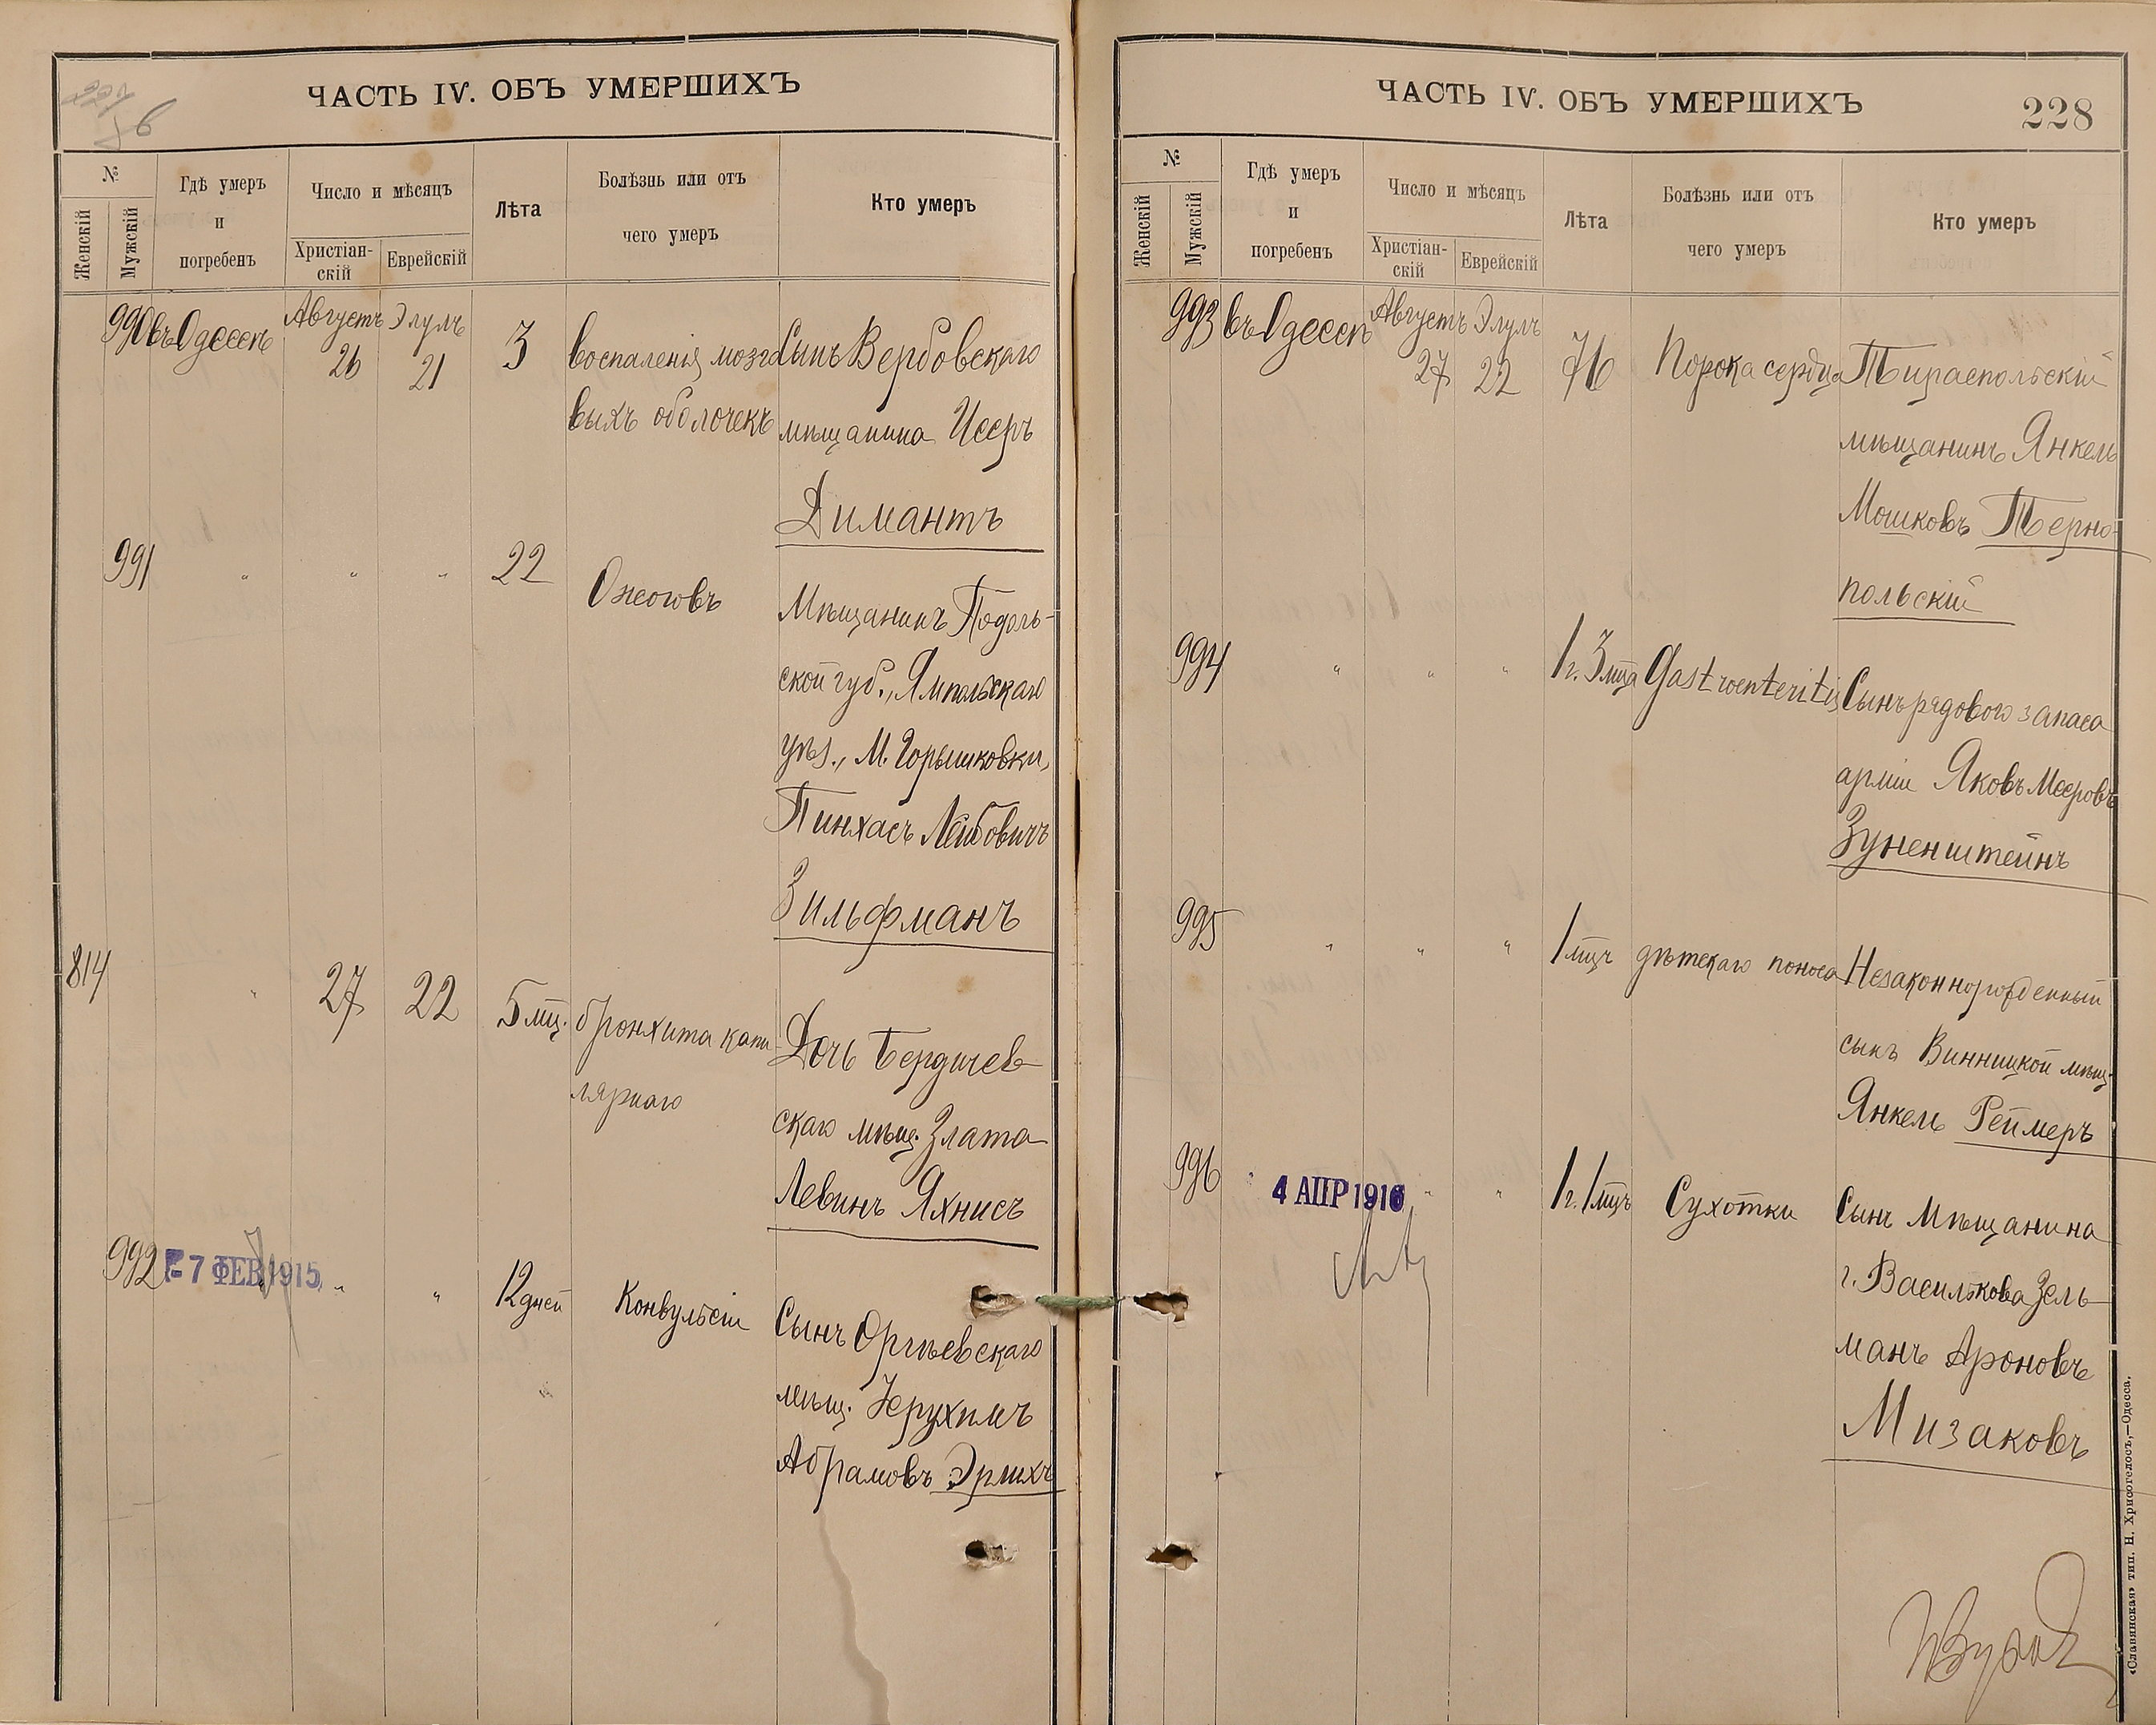 ЧАСТЬ IV. ОБЪ УМЕРШИХЪ
№
Женскій
Мужскій
Гдѣ умеръ
и
погребенъ
Число и мѣсяцъ
Христіан-
скій
Еврейскій
Лѣта
Болѣзнь или отъ
чего умеръ
Кто умеръ
990 въ Одессѣ Августъ 26 Элулъ 21 3
воспаленія мозго
выхъ оболочекъ
Сынъ Вербовскаго
мѣщанина Исеръ
Димантъ
991 " " " 22 Ожоговъ
Мѣщанинъ Подоль-
ской губ., Ямпольскаго
уѣз., М. Горышковки,
Пинхасъ Лейбовичъ
Зильфманъ
814 " 27 22 5 мц.
бронхита капи
лярнаго
Дочь Бердичев
скаго мѣщ. Злата
Левинъ Яхнисъ
992 - 7 ФЕВ 1915 " " 12 дней Конвульсіи
Сынъ Оргѣевскаго
мѣщ. Іерухимъ
Абрамовъ Эрлихъ
ЧАСТЬ IV. ОБЪ УМЕРШИХЪ
228
№
Женскій
Мужскій
Гдѣ умеръ
и
погребенъ
Число и мѣсяцъ
Христіан-
скій
Еврейскій
Лѣта
Болѣзнь или отъ
чего умеръ
Кто умеръ
993 въ Одессѣ Августъ 27 Элулъ 22 76 Порока сердца
Тираспольскій
мѣщанинъ Янкель
Мошковъ Терно-
польскій
994 " " " 1 г. 3 мца Gastroenteritis
Сынъ рядового запаса
арміи Яковъ Мееровъ
Зуненштейнъ
995 " " " 1 мцъ дѣтскаго поноса
Незаконнорожденный
сынъ Винницкой мѣщ.
Янкель Реймеръ
996 " 4 АПР 1916 " " 1 г. 1 мцъ Сухотки
Сынъ Мѣщанина
г. Василькова Зель
манъ Ароновъ
Мизаковъ
«Славянская» тип. Н. Хрисогелосъ,—Одесса.